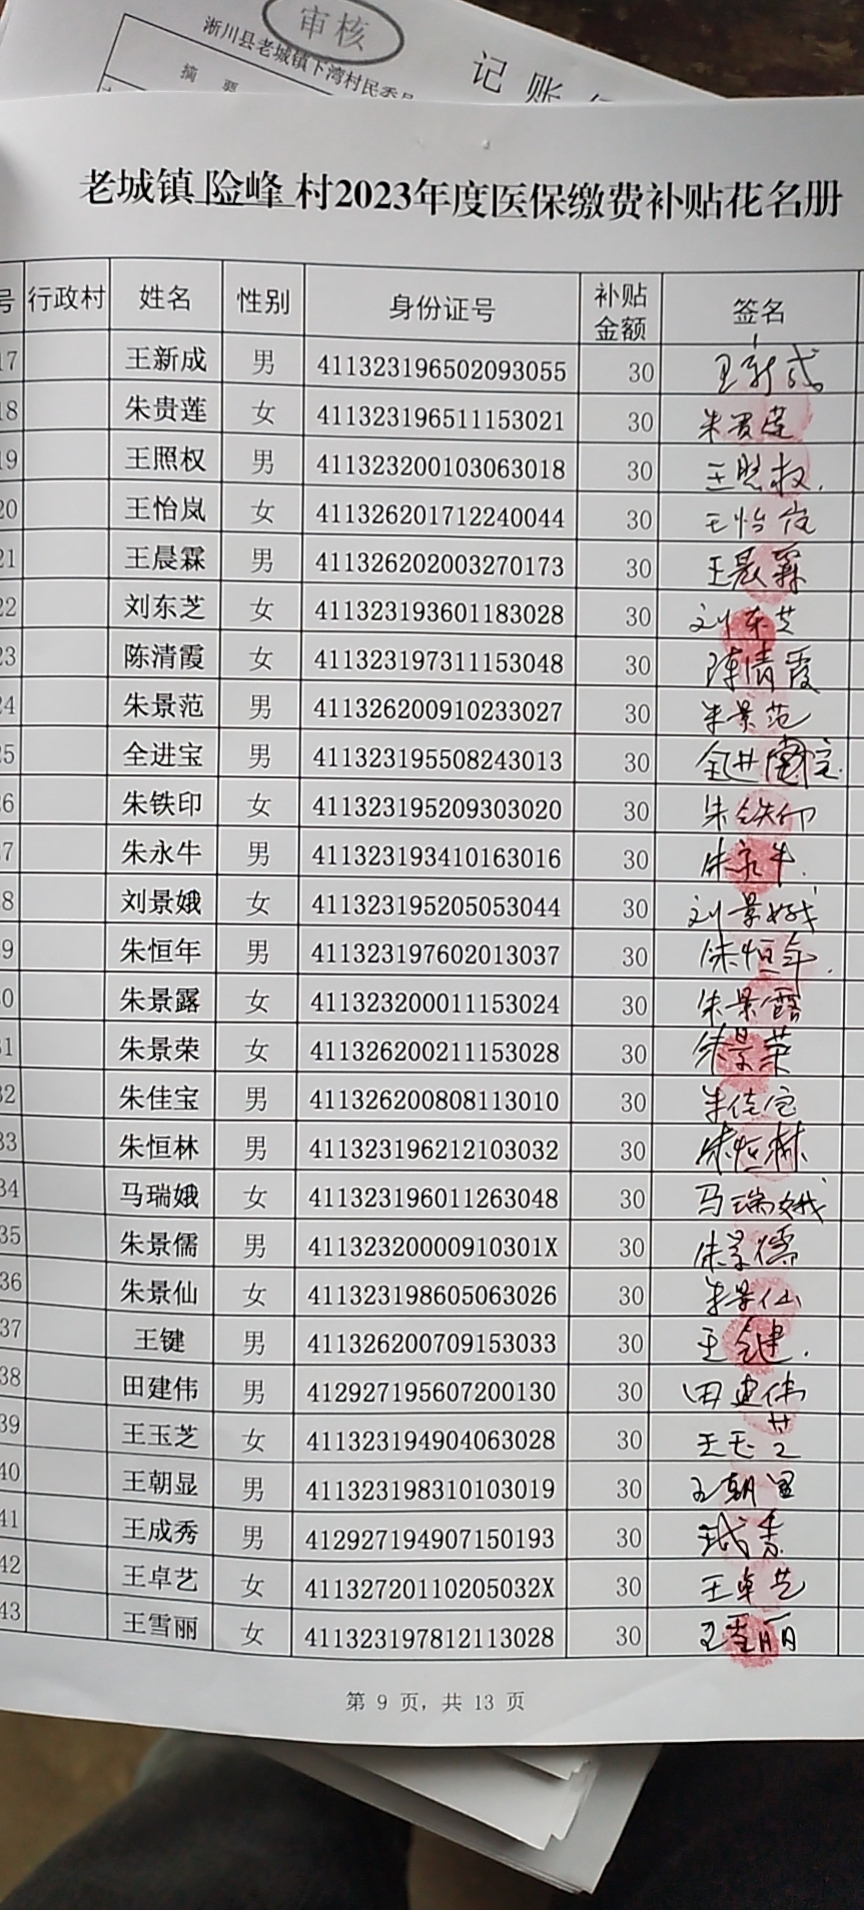 审核
淅川县老城镇下湾村民委员
摘 要
记 账
老城镇 险峰 村2023年度医保缴费补贴花名册
号 行政村 姓名 性别 身份证号 补贴金额 签名
17 王新成 男 411323196502093055 30 王新成
18 朱贵莲 女 411323196511153021 30 朱贵莲
19 王照权 男 411323200103063018 30 王照权
20 王怡岚 女 411326201712240044 30 王怡岚
21 王晨霖 男 411326202003270173 30 王晨霖
22 刘东芝 女 411323193601183028 30 刘东芝
23 陈清霞 女 411323197311153048 30 陈清霞
24 朱景范 男 411326200910233027 30 朱景范
25 全进宝 男 411323195508243013 30 全进宝
26 朱铁印 女 411323195209303020 30 朱铁印
27 朱永牛 男 411323193410163016 30 朱永牛
28 刘景娥 女 411323195205053044 30 刘景娥
29 朱恒年 男 411323197602013037 30 朱恒年
30 朱景露 女 411323200011153024 30 朱景露
31 朱景荣 女 411326200211153028 30 朱景荣
32 朱佳宝 男 411326200808113010 30 朱佳宝
33 朱恒林 男 411323196212103032 30 朱恒林
34 马瑞娥 女 411323196011263048 30 马瑞娥
35 朱景儒 男 41132320000910301X 30 朱景儒
36 朱景仙 女 411323198605063026 30 朱景仙
37 王键 男 411326200709153033 30 王键
38 田建伟 男 412927195607200130 30 田建伟
39 王玉芝 女 411323194904063028 30 王玉芝
40 王朝显 男 411323198310103019 30 王朝显
41 王成秀 男 412927194907150193 30 王成秀
42 王卓艺 女 41132720110205032X 30 王卓艺
43 王雪丽 女 411323197812113028 30 王雪丽
第 9 页，共 13 页